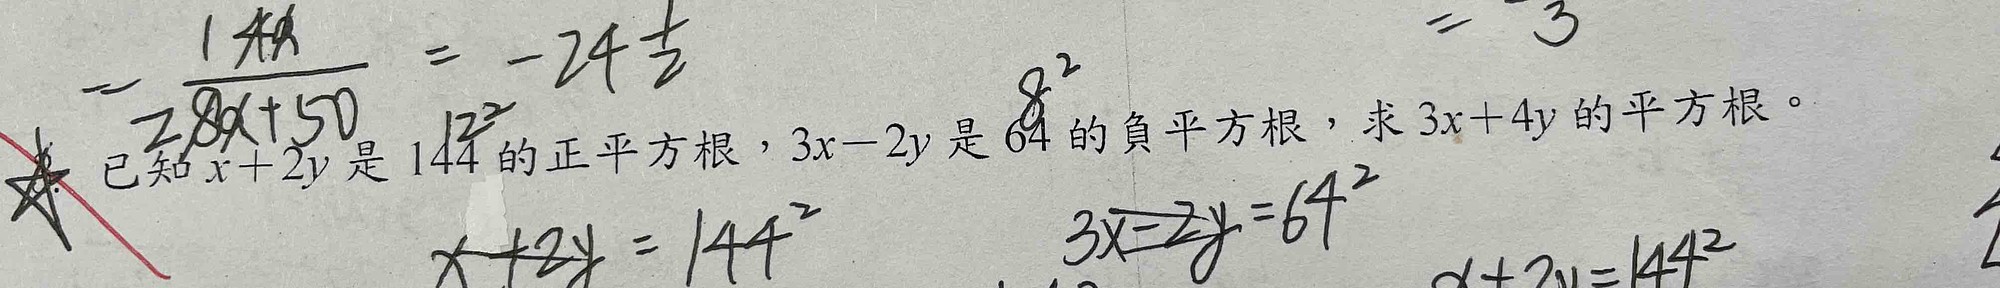 = 144 / 28x+50 = -24 1/2
= -3
12² 8²
已知 x+2y 是 144 的正平方根，3x－2y 是 64 的負平方根，求 3x＋4y 的平方根。
x+2y = 144² 3x-2y = 64²
x+2y = 144²